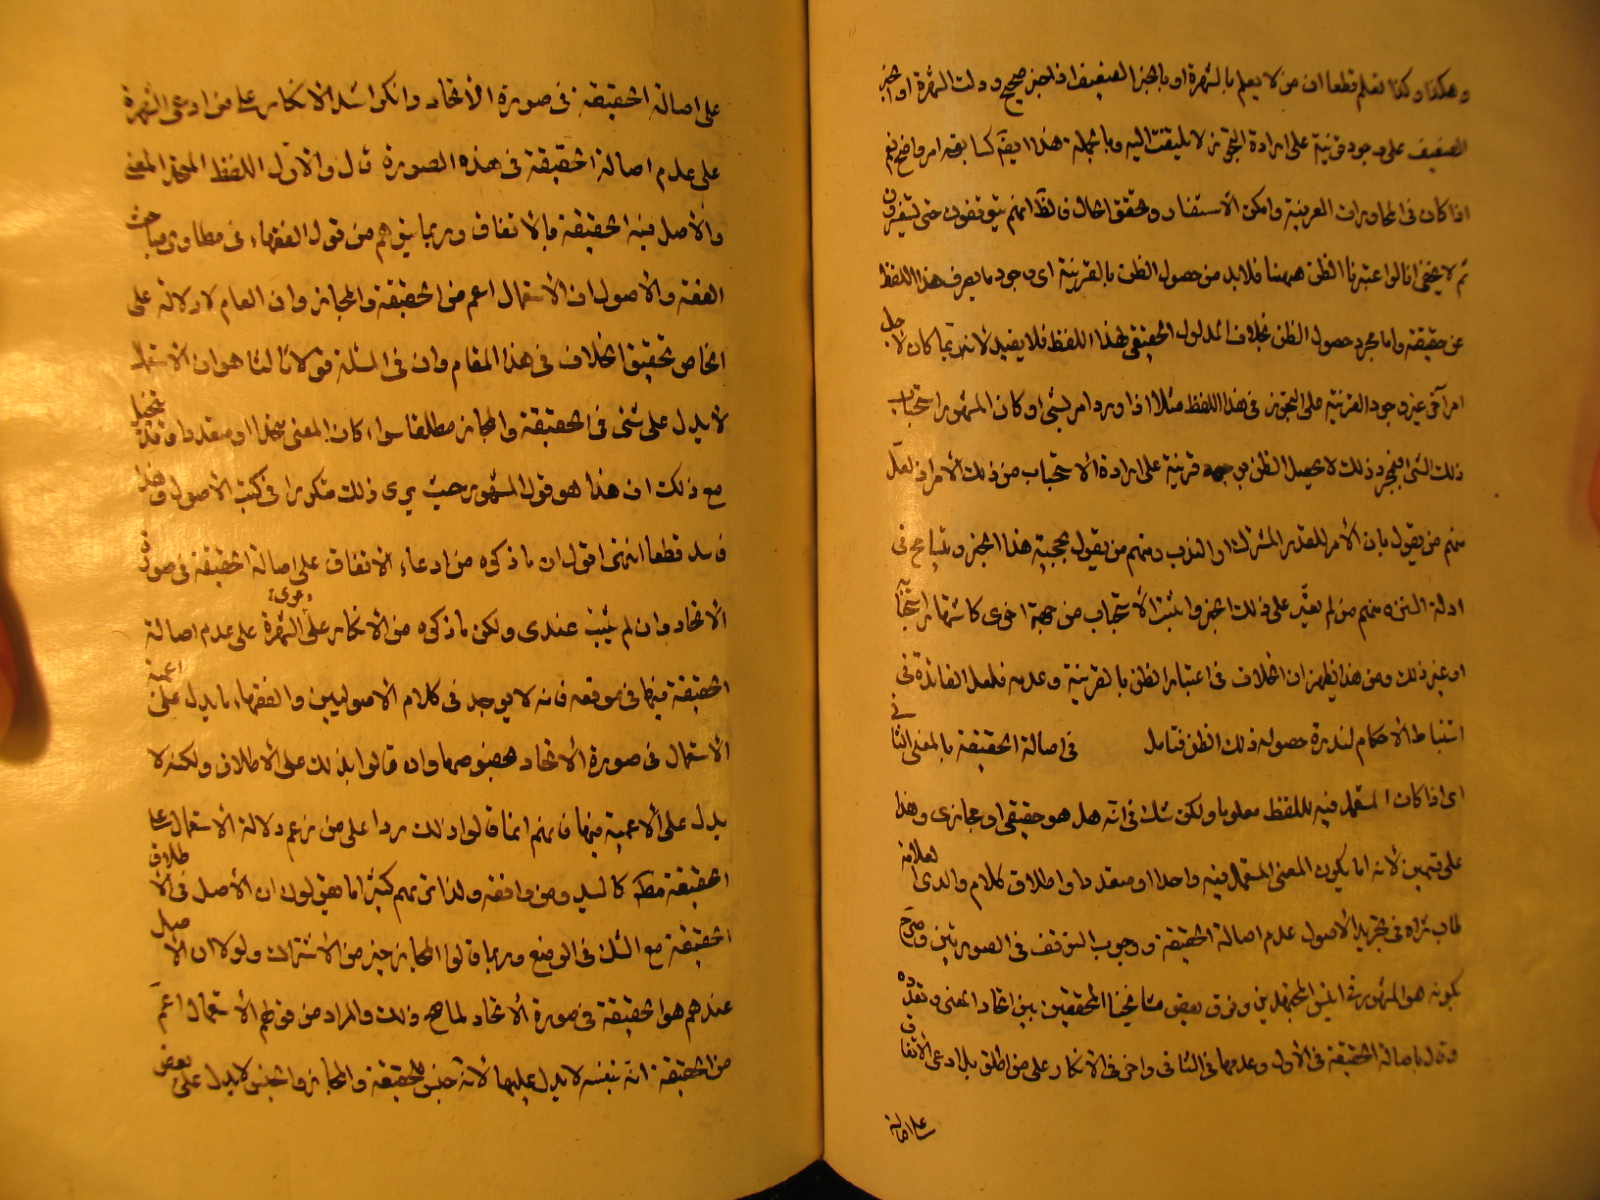 وهكذا وكذا نعلم قطعا ان من لا يعلم بالشهرة او بالخبر الضعيف اذا خبر صحيح ودلت الشهرة او الخبر
الضعيف على وجود قرينة على ارادة التجوز لا يلتفت اليه وبالجملة هذا ايضا كسابقه امر واضح نعم
اذا كان في المحاورات العرفية وامكن الاستفسار وتحقق الحال فالظ انهم يتوقفون حتى
ثم لا يخفى انا لو اعتبرنا الظن ههنا فلا بد من حصول الظن بالقرينة اى بوجود ما يصرف هذا اللفظ
عن حقيقته واما مجرد حصول الظن بخلاف المدلول الحقيقي لهذا اللفظ فلا يفيد لانه ربما كان لاجل
امر آخر غير وجود القرينة على التجوز في هذا اللفظ مثلا اذا ورد امر بشئ او كان المشهور استحباب
ذلك الشئ فبمجرد ذلك لا يحصل الظن بوجود قرينة على ارادة الاستحباب من ذلك الامر اذ لعل
منهم من يقول بان الامر للقدر المشترك او الندب ومنهم من يقول بحجية هذا الخبر ويتسامح في
ادلة السنن ومنهم من لم يعثر على ذلك الخبر واثبت الاستحباب من جهة اخرى كاشتهار استحبابه
او غير ذلك ومن هذا يظهر ان الخلاف في اعتبار الظن بالقرينة وعدمه قليل الفائدة في
استنباط الاحكام لندرة حصول ذلك الظن فتامل في اصالة الحقيقة بالمعنى الثاني
اى اذا كان المستعمل فيه للفظ معلوما ولكن شك في انه هل هو حقيقي او مجازى وهذا
على قسمين لانه اما يكون المعنى المستعمل فيه واحدا او متعددا واطلاق كلام والدى العلامة
طاب ثراه في تجريد الاصول عدم اصالة الحقيقة ووجوب التوقف في الصورتين وصرح
بكونه هو المشهور في انيس المجتهدين وفرق بعض مشايخنا المحققين بين اتحاد المعنى وتعدده
وقال باصالة الحقيقة في الاول وعدمها في الثاني واخر في الانكار على من اطلق بل ادعى الاتفاق
على اصالة
على اصالة الحقيقة في صورة الاتحاد وانكر اشد الانكار على من ادعى الشهرة
على عدم اصالة الحقيقة في هذه الصورة قال والاول اللفظ المتحد المعنى
والاصل فيه الحقيقة بالاتفاق وربما يتوهم من قول الفقهاء في مطاوى مباحث
الفقه والاصول ان الاستعمال اعم من الحقيقة والمجاز وان العام لا دلالة على
الخاص تحقيق الخلاف في هذا المقام وان في المسئلة قولا ثالثا هو ان الاستعمال
لا يدل على شئ في الحقيقة والمجاز مطلقا سواء كان المعنى متحدا او متعددا وقد يتخيل
مع ذلك ان هذا هو قول المشهور حيث يرى ذلك متكررا في كتب الاصول وهذا
فاسد قطعا انتهى اقول ان ما ذكره من ادعاء الاتفاق على اصالة الحقيقة في صورة
الاتحاد وان لم يثبت عندى ولكن ما ذكره من الانكار على دعوى الشهرة على عدم اصالة
الحقيقة فيها في موقعه فانه لا يوجد في كلام الاصوليين والفقهاء ما يدل على اعمية
الاستعمال في صورة الاتحاد بخصوصها وان قالوا بذلك على الاطلاق ولكنه لا
يدل على الاعمية فيها فانهم انما قالوا ذلك ردا على من زعم دلالة الاستعمال على
الحقيقة مطلقا كالسيد ومن وافقه ولذا ترىهم كثيرا ما يقولون ان الاصل في الاطلاق
الحقيقة مع الشك في الوضع وربما قالوا المجاز خير من الاشتراك ولولا ان الاصل
عندهم هو الحقيقة في صورة الاتحاد لما صح ذلك والمراد من قولهم الاستعمال اعم
من الحقيقة انه بنفسه لا يدل عليها لانه جنس للحقيقة والمجاز والجنس لا يدل على بعض